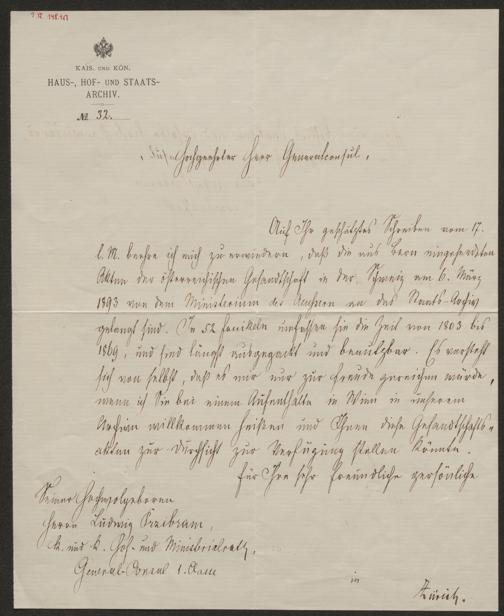 KAIS. UND KÖN.
HAUS-, HOF- UND STAATS-
ARCHIV.
№ 32.
Hochgeehrter Herr Generalconsul,
Auf Ihr geschätztes Schreiben vom 17.
l. M. beehre ich mich zu erwiedern, daß die aus Bern eingesendeten
Akten der österreichischen Gesandtschaft in der Schweiz am 6. März
1893 von dem Ministerium des Aeussern an das Staats-Archiv
gelangt sind. In 52 Faszikeln umfassen sie die Zeit von 1803 bis
1869, und sind längst ausgepackt und benutzbar. Es versteht
sich von selbst, daß es mir nur zur Freude gereichen würde,
wenn ich Sie bei einem Aufenthalte in Wien in unserem
Archiv willkommen heißen und Ihnen diese Gesandtschafts-
akten zur Durchsicht zur Verfügung stellen könnte.
Für Ihre sehr freundliche persönliche
Seiner Hochwolgeboren
Herrn Ludwig Przibram,
k. und k. Hof- und Ministerialrath,
General-Consul 1. Classe
in
Zürich.